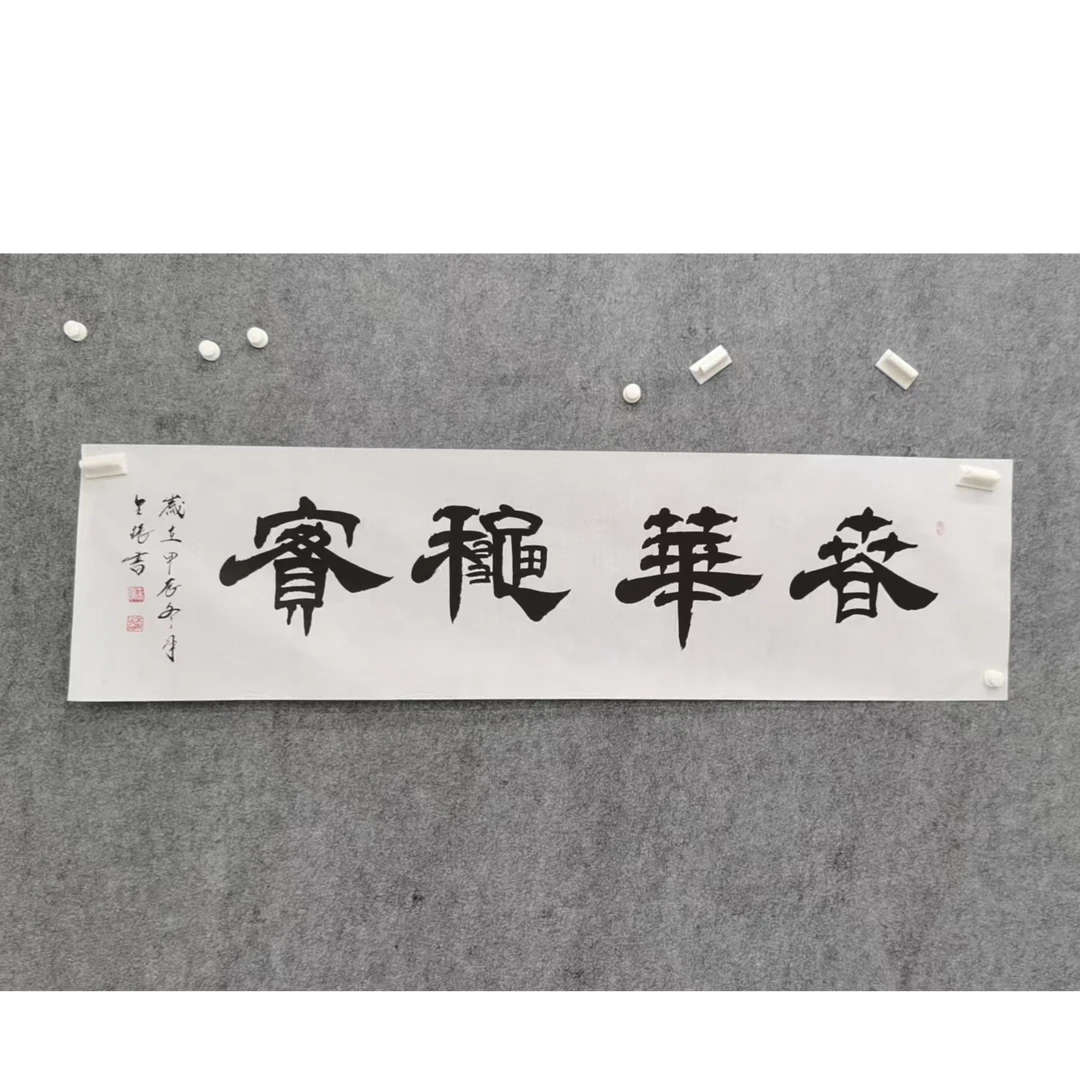 春華龝實
歲在甲辰冬月
書